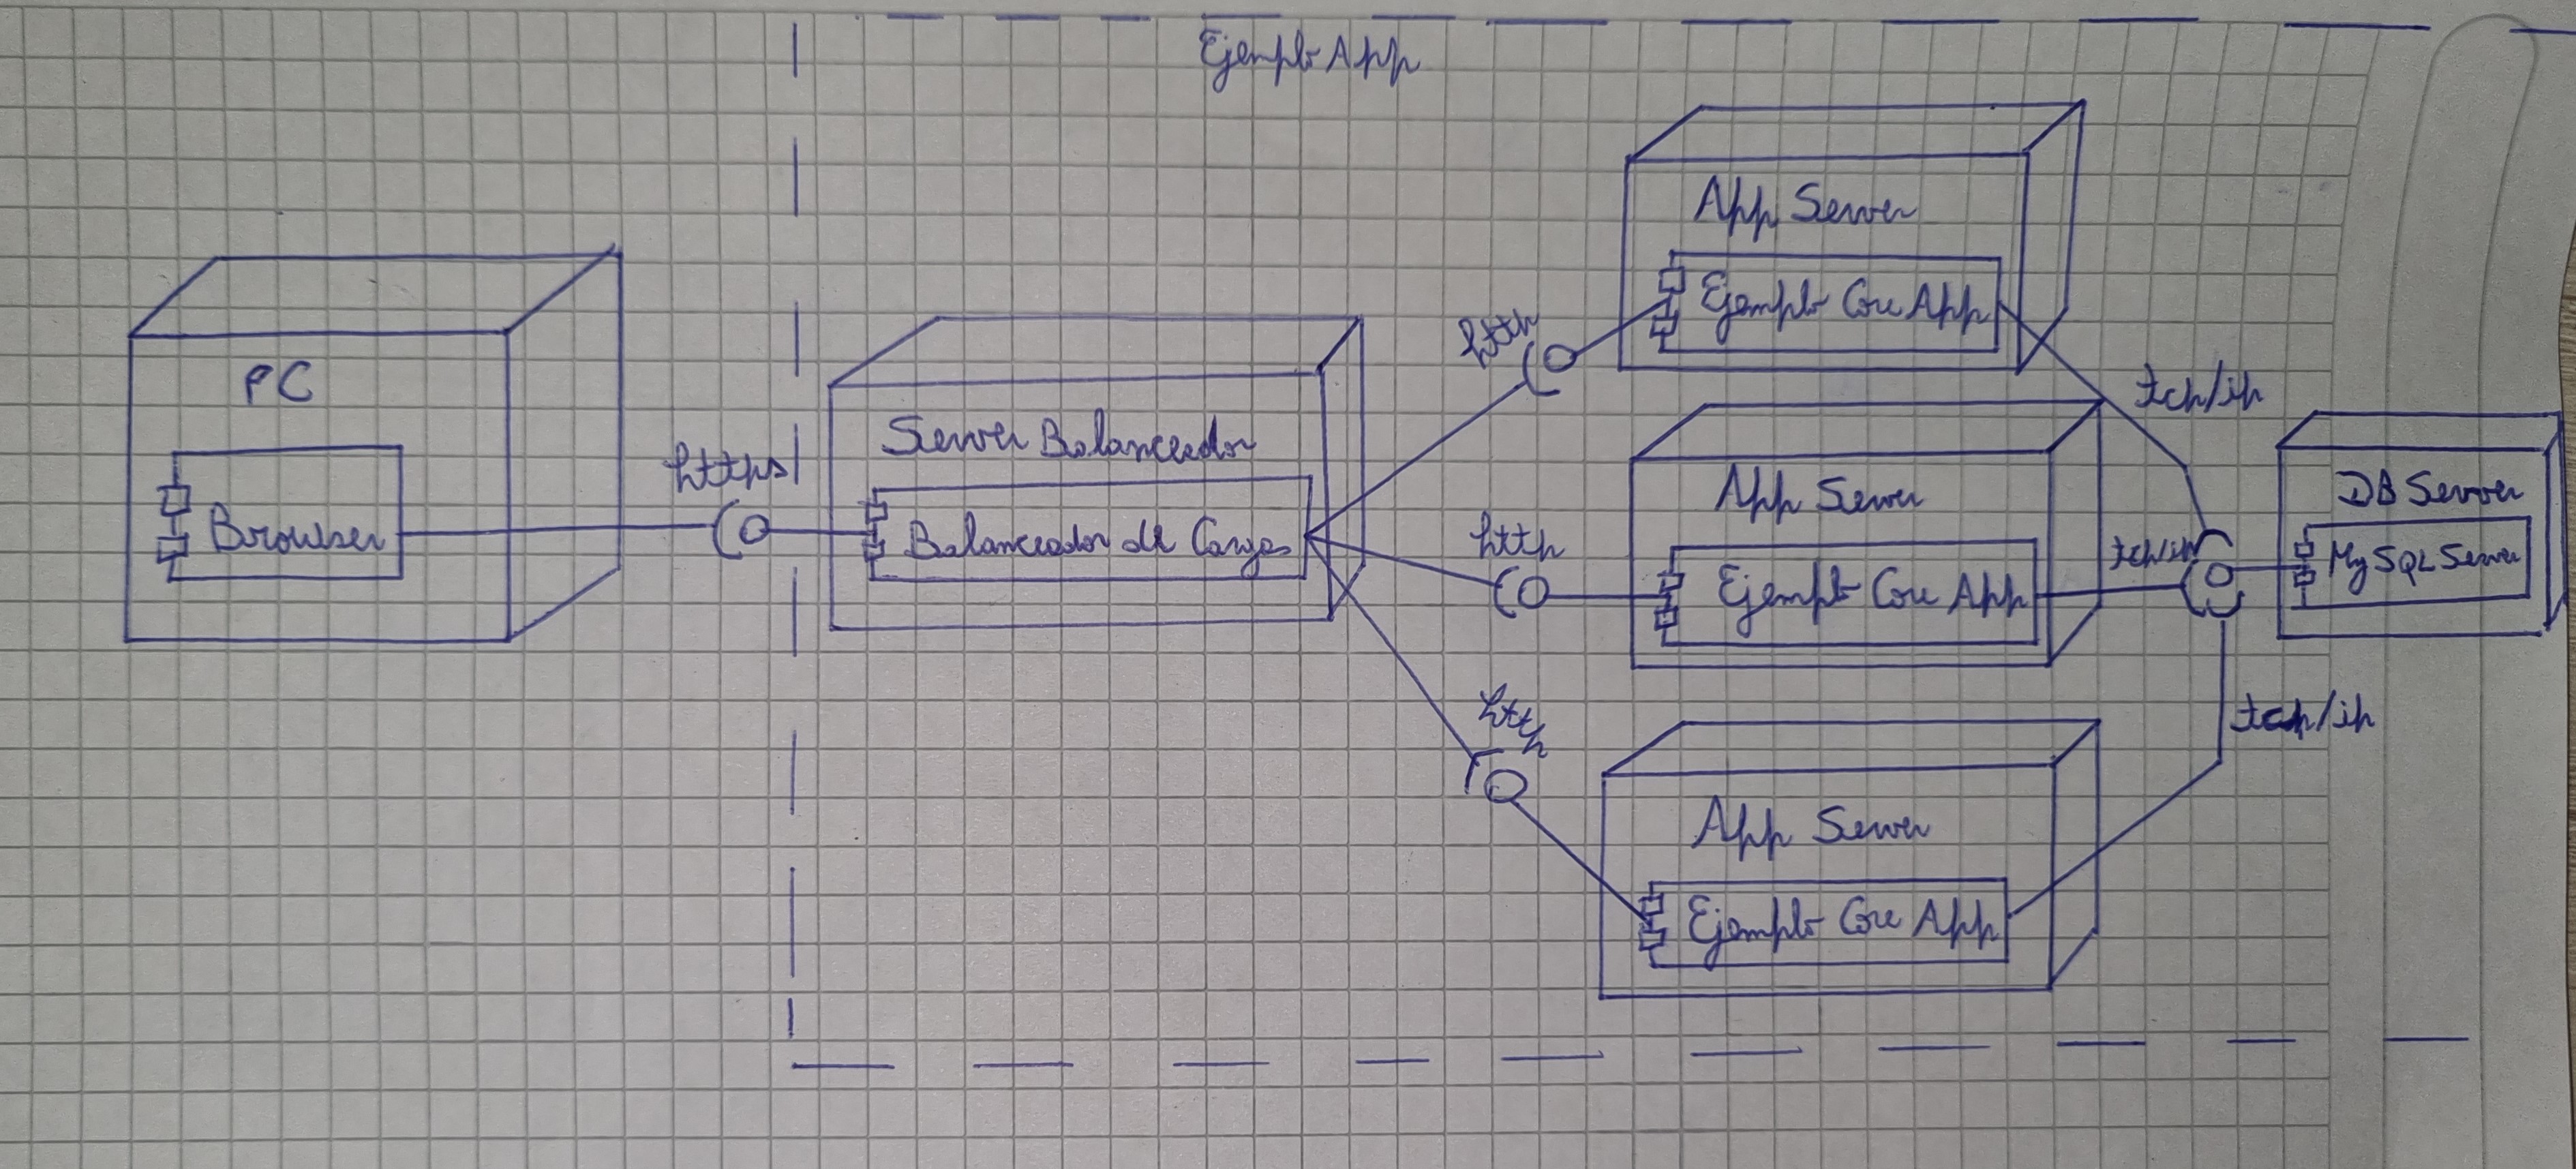 Ejemplo App
PC
Browser
https
Server Balanceador
Balanceador de Cargas
http
App Server
Ejemplo Core App
http
App Server
Ejemplo Core App
http
App Server
Ejemplo Core App
tcp/ip
tcp/ip
tcp/ip
DB Server
MySQL Server